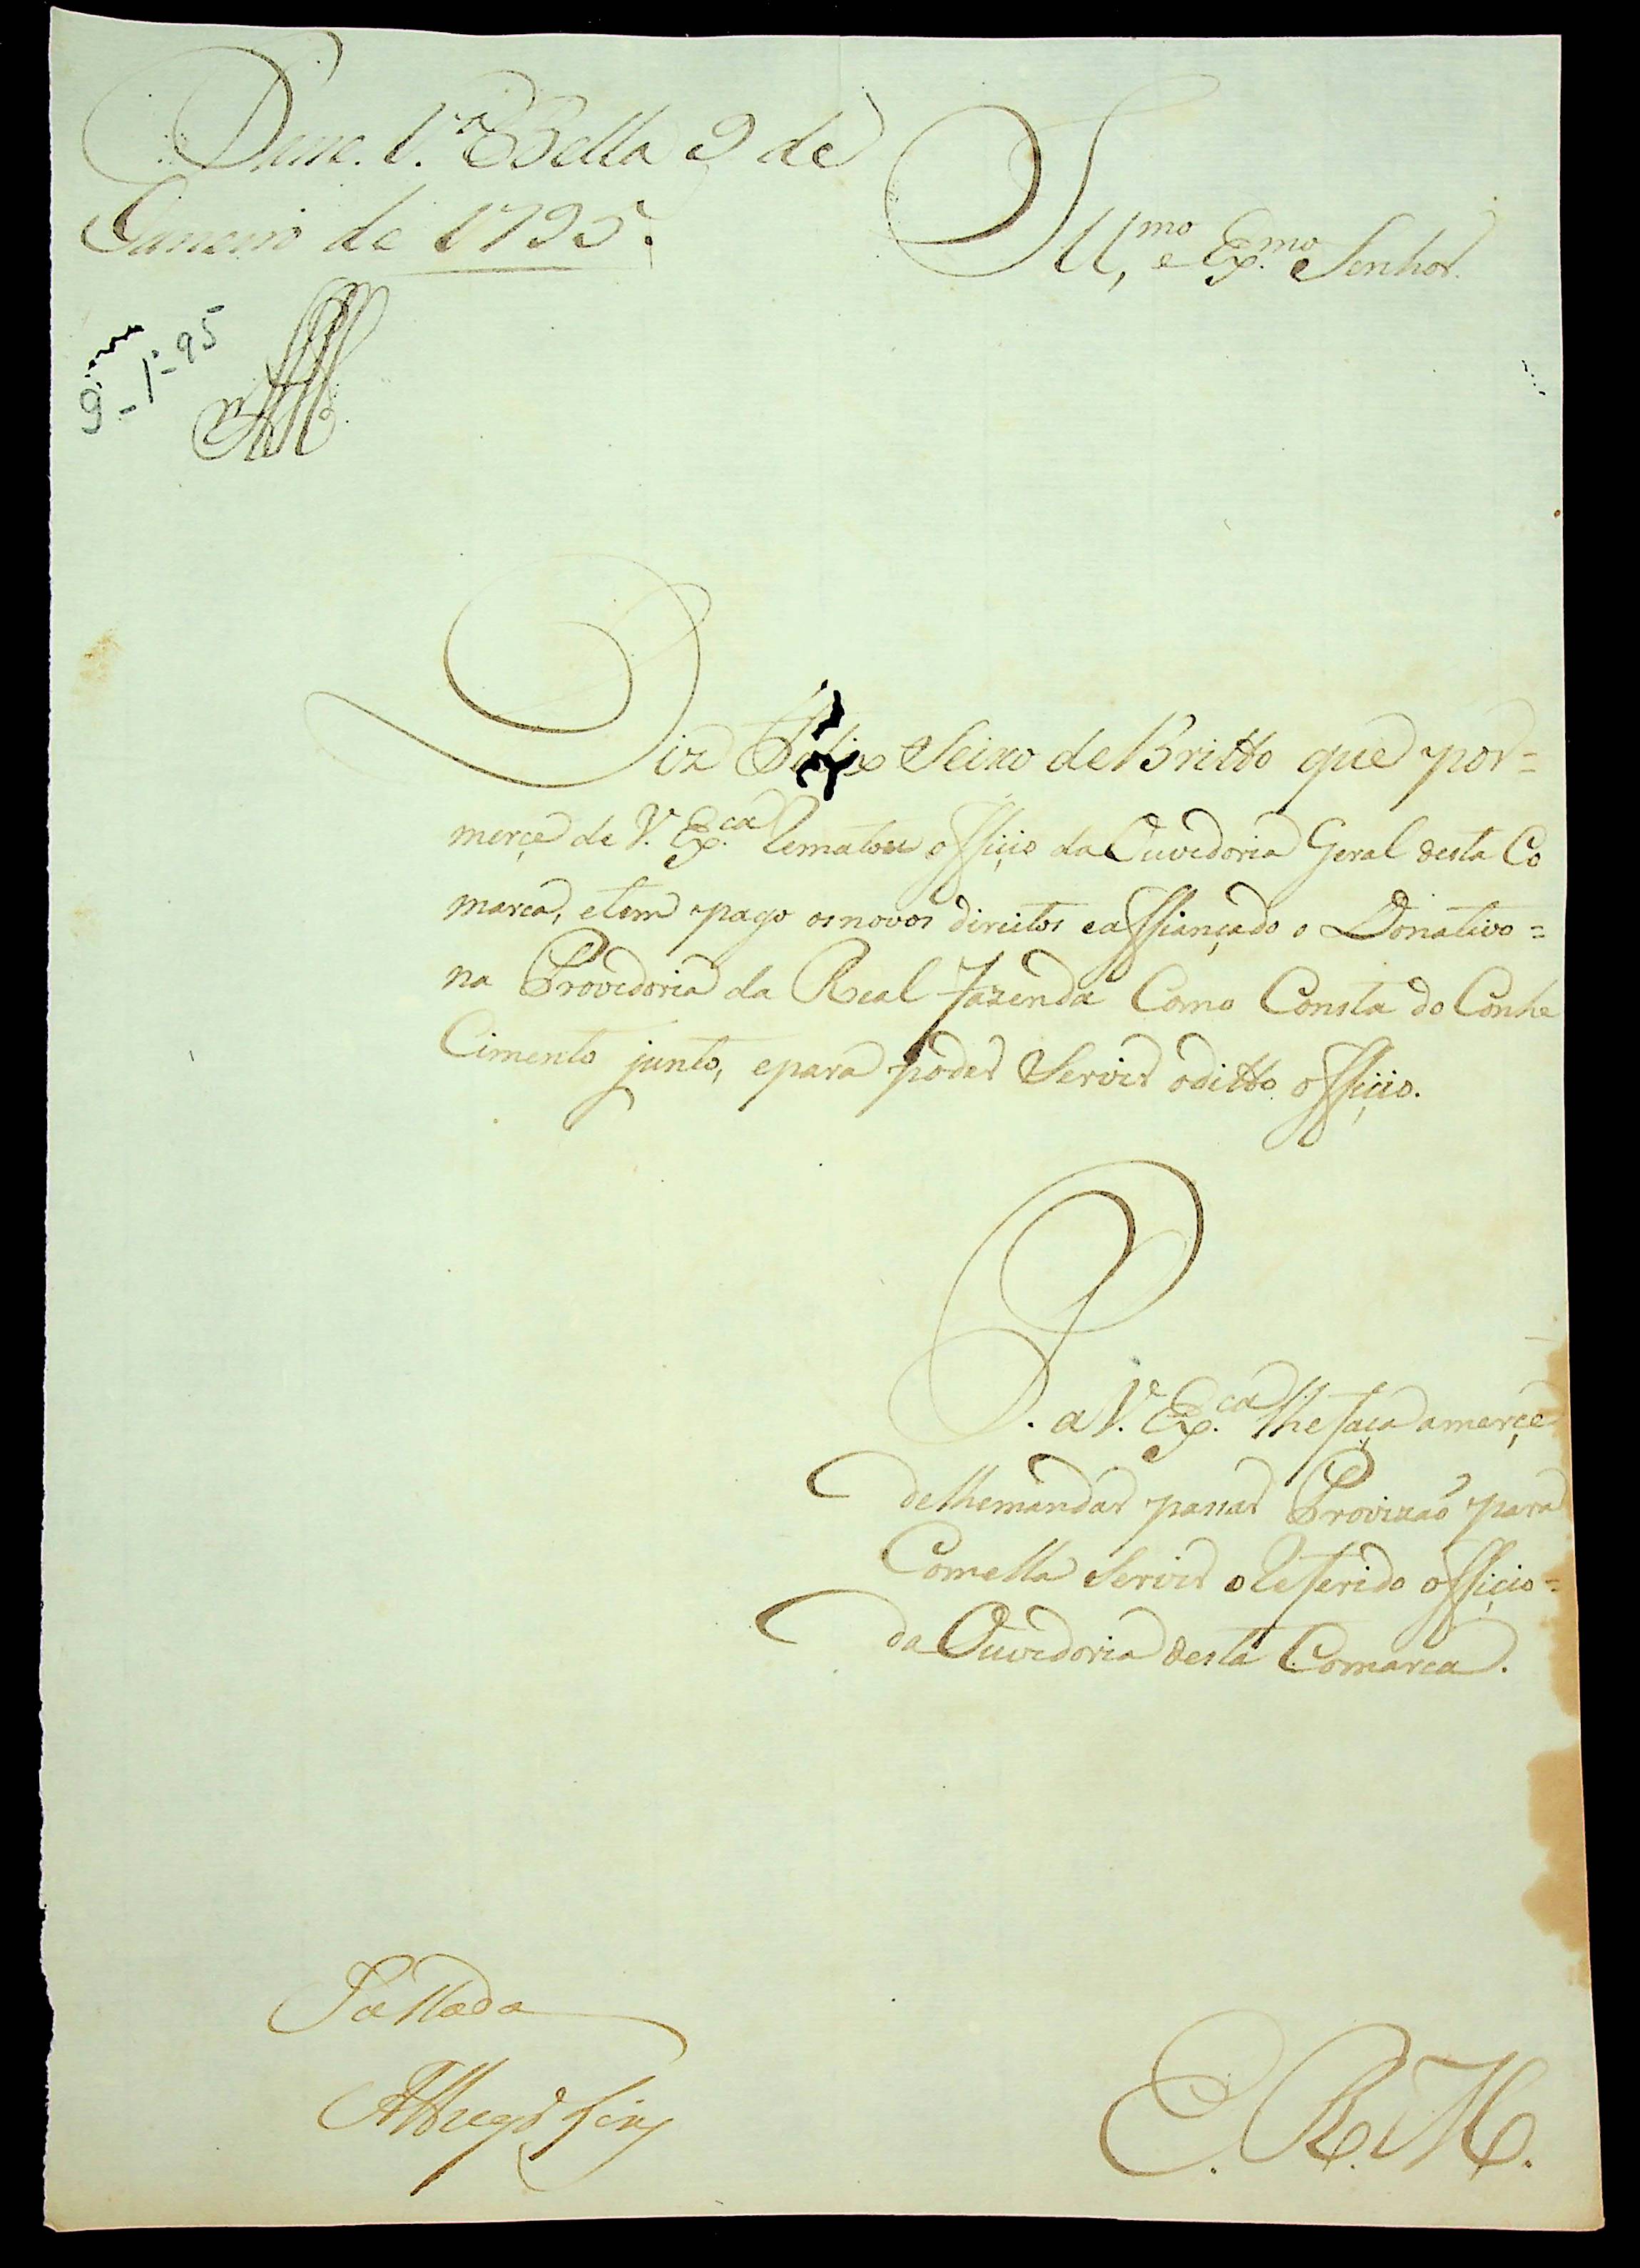 Passe. V.ª Bella 9 de
Janeiro de 1795.
9-1-95
Ill.mo, e Ex.mo Senhor.
Diz Felix Seixo de Britto que por=
merçe de V. Ex.ca Rematou offiçio da Ouvedoria Geral desta Co
marca, etem pago osnovos direitos eaffiançado o Donativo=
na Provedoria da Real Fazenda Como Consta do Conhe
Cimento junto, epara poder Servir oditto offiçio.
P. a V. Ex.ca lhe faça amerçe
delhemandar passar Provizaõ para
Comella Servir oReferido offiçio=
da Ouvedoria desta Comarca.
Passada
E. R. M.